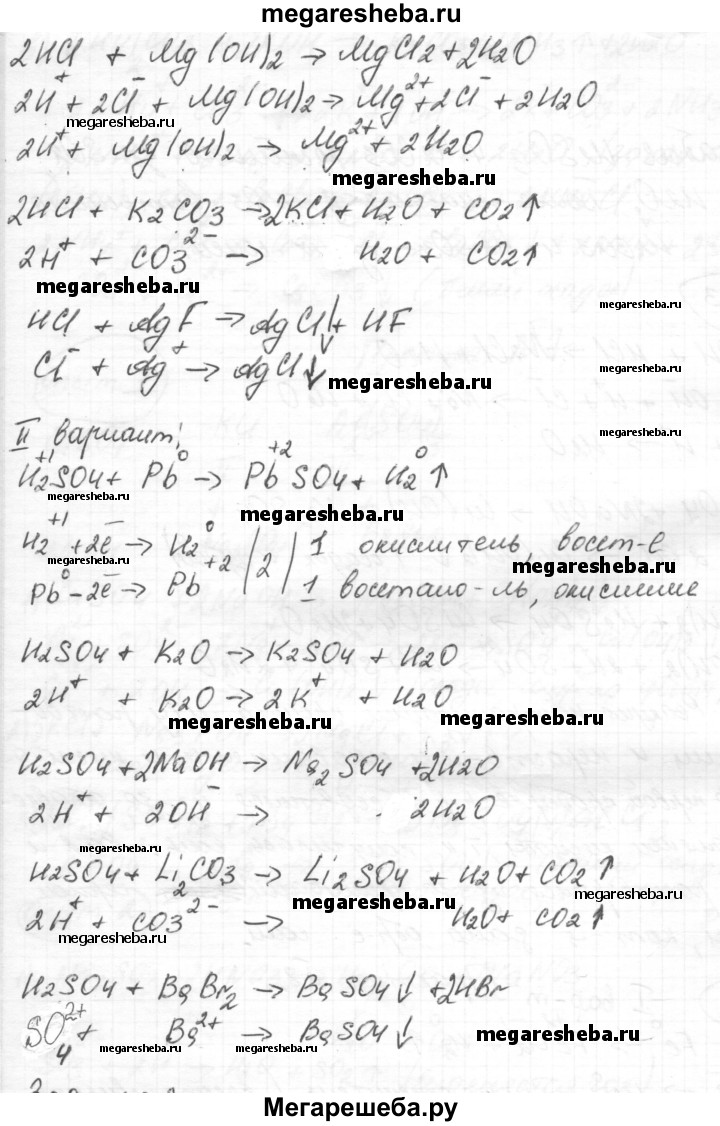 megaresheba.ru
2HCl + Mg(OH)2 → MgCl2 + 2H2O
2H⁺ + 2Cl⁻ + Mg(OH)2 → Mg²⁺ + 2Cl⁻ + 2H2O
megaresheba.ru
2H⁺ + Mg(OH)2 → Mg²⁺ + 2H2O
megaresheba.ru
2HCl + K2CO3 → 2KCl + H2O + CO2↑
2H⁺ + CO3²⁻ → H2O + CO2↑
megaresheba.ru
megaresheba.ru
HCl + AgF → AgCl↓ + HF
Cl⁻ + Ag⁺ → AgCl↓
megaresheba.ru
II вариант!
megaresheba.ru
H2⁺¹SO4 + Pb⁰ → Pb⁺²SO4 + H2⁰↑
megaresheba.ru
megaresheba.ru
H2⁺¹ + 2e⁻ → H2⁰ | 2 | 1 окислитель, восст-е
megaresheba.ru
megaresheba.ru
Pb⁰ - 2e⁻ → Pb⁺² | | 1 восстано-ль, окисление
H2SO4 + K2O → K2SO4 + H2O
2H⁺ + K2O → 2K⁺ + H2O
megaresheba.ru
megaresheba.ru
H2SO4 + 2NaOH → Na2SO4 + 2H2O
2H⁺ + 2OH⁻ → 2H2O
megaresheba.ru
megaresheba.ru
H2SO4 + Li2CO3 → Li2SO4 + H2O + CO2↑
megaresheba.ru
megaresheba.ru
2H⁺ + CO3²⁻ → H2O + CO2↑
megaresheba.ru
H2SO4 + BaBr2 → BaSO4↓ + 2HBr
SO4²⁺ + Ba²⁺ → BaSO4↓
megaresheba.ru
megaresheba.ru
megaresheba.ru
Мегарешеба.ру